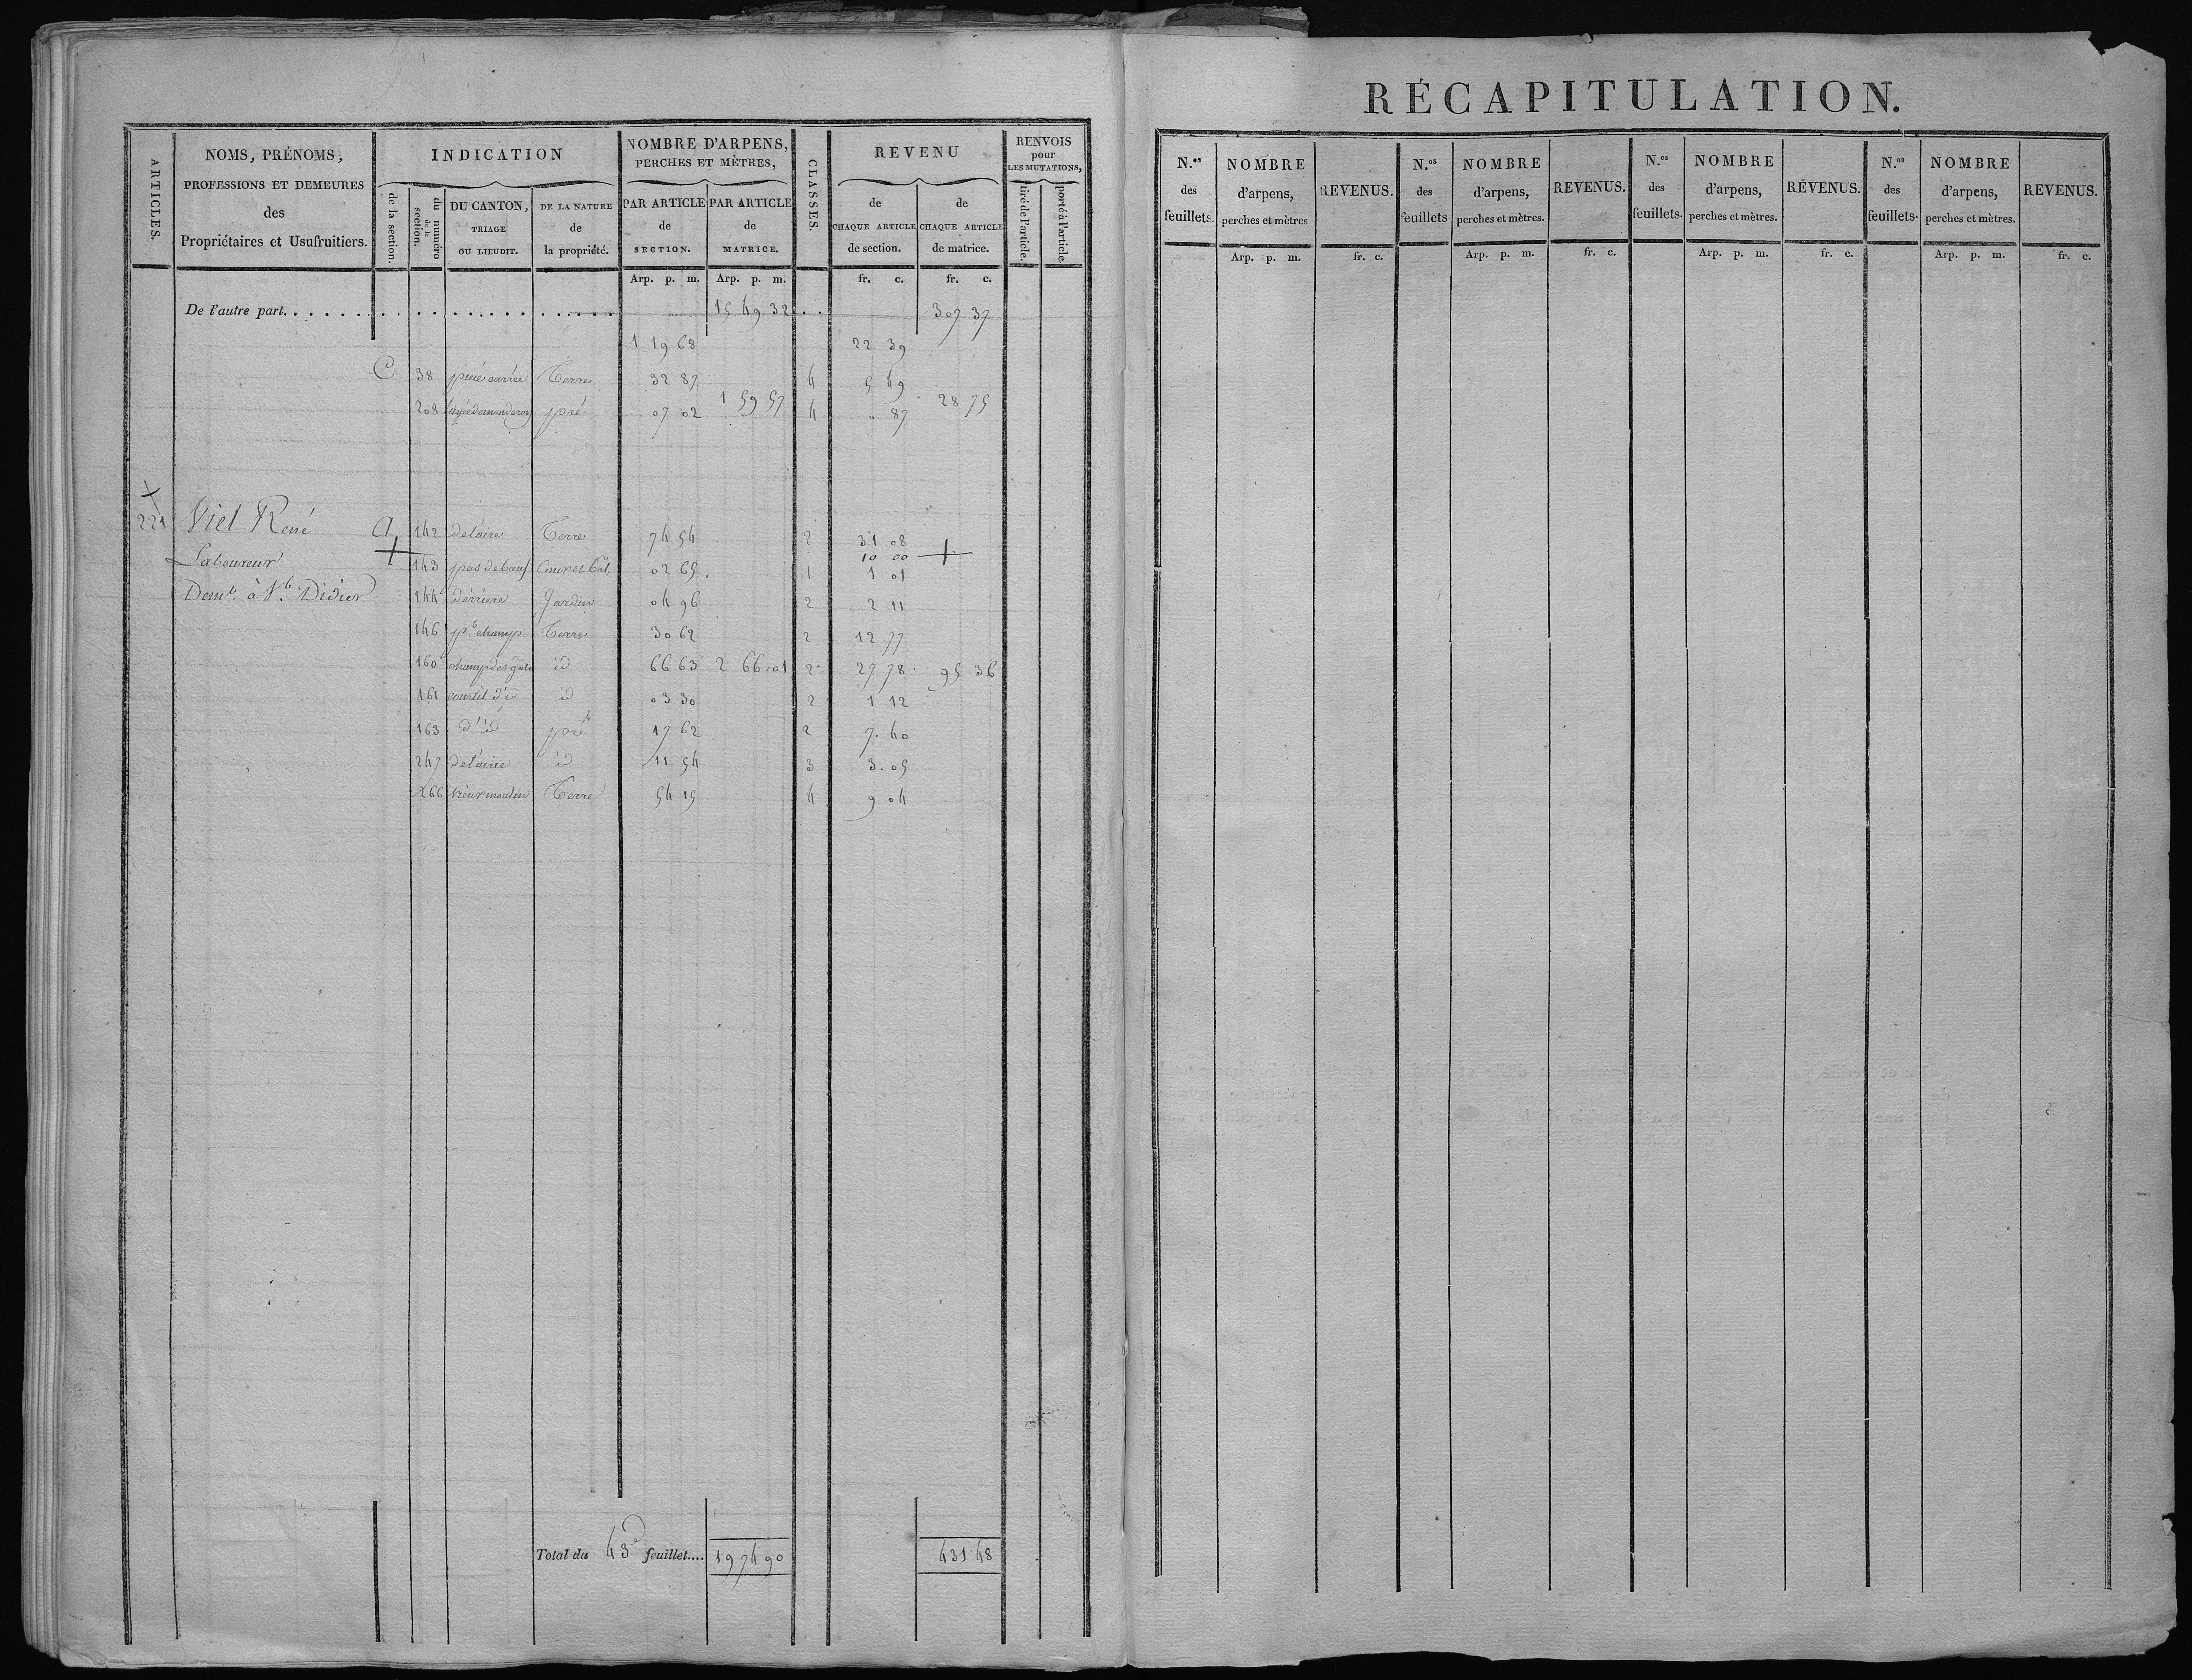 ARTICLES.
NOMS, PRÉNOMS,
PROFESSIONS ET DEMEURES
des
Propriétaires et Usufruitiers.
INDICATION
de la section.
du numéro de la section.
DU CANTON,
TRIAGE
OU LIEUDIT.
DE LA NATURE
de
la propriété.
NOMBRE D'ARPENS,
PERCHES ET MÈTRES,
PAR ARTICLE
de
SECTION.
PAR ARTICLE
de
MATRICE.
CLASSES.
REVENU
de
CHAQUE ARTICLE
de section.
de
CHAQUE ARTICLE
de matrice.
RENVOIS
pour
LES MUTATIONS,
tiré de l'article.
porté à l'article.
Arp. p. m. Arp. p. m. fr. c. fr. c.
De l'autre part. 15 49 32 307 37
1 19 68 22 39
C 38 pièce carrée Terre 32 87 4 5 49
1 59 57 28 75
208 pré 07 02 4 0 87
221 Viel René A 142 Terre 74 54 2 31 08
10 00
Laboureur 143 pas de bœuf Cour et Bât. 02 65 1 1 01
Demt. à St. Didier 144 derrière Jardin 04 96 2 2 11
146 pt. champ Terre 30 62 2 12 77
160 id 66 63 2 66 01 2 27 78 95 36
161 courtil d'id id 03 30 2 1 12
163 d'id pré 17 62 2 7. 40
247 id 11 54 3 3. 05
266 vieux moulin Terre 54 15 4 9 04
Total du 43e feuillet.... 19 74 90 431 48
RÉCAPITULATION.
N.os
des
feuillets.
NOMBRE
d'arpens,
perches et mètres
REVENUS.
N.os
des
feuillets
NOMBRE
d'arpens,
perches et mètres.
REVENUS.
N.os
des
feuillets.
NOMBRE
d'arpens,
perches et mètres.
REVENUS.
N.os
des
feuillets.
NOMBRE
d'arpens,
perches et mètres.
REVENUS.
Arp. p. m. fr. c. Arp. p. m. fr. c. Arp. p. m. fr. c. Arp. p. m. fr. c.